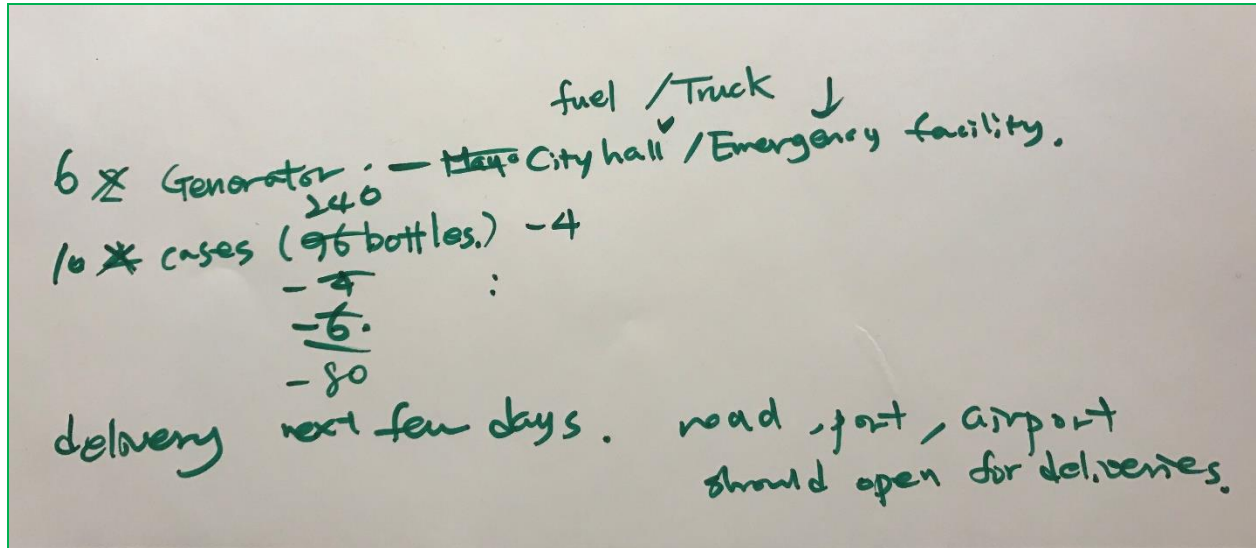 fuel / Truck ↓
6 Generator. - City hall ✓ / Emergency facility.
240
10 cases (96 bottles.) -4
- 4 :
- 6.
- 80
delivery next few days. road, port, airport
should open for deliveries.